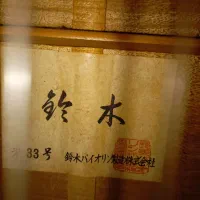 鈴木
33号 鈴木バイオリン製造株式会社